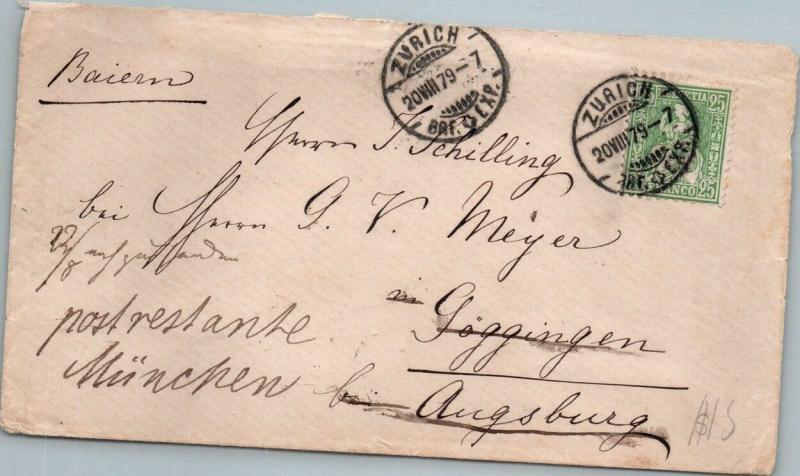 Baiern
ZÜRICH
20 VIII 79–7
BRF. EXP.
ZÜRICH
20 VIII 79–7
BRF. EXP.
HELVETIA 25
FRANCO 25
Herrn J Schilling
bei Herrn G. V. Meyer
22/8 nachzusenden
in Göggingen
postrestante
München
bei Augsburg